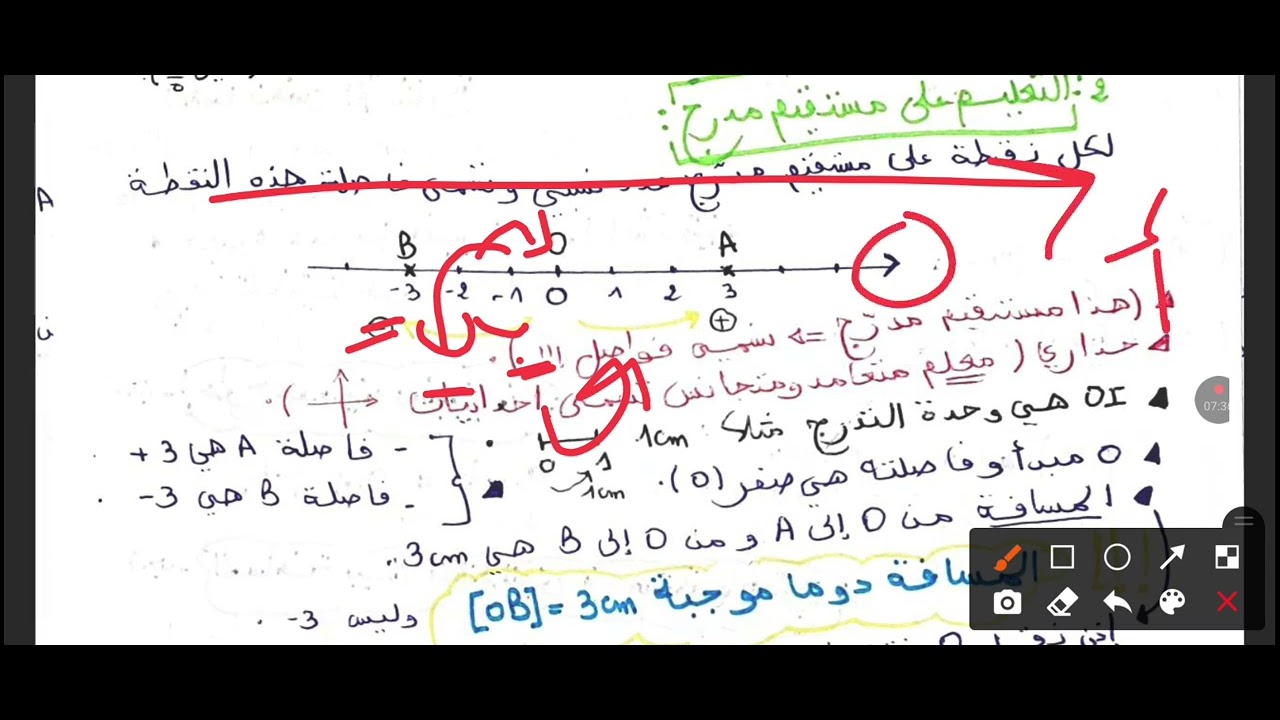 2: التعليم على مستقيم مدرج :
لكل نقطة على مستقيم مدرّج عدد نسبي وتسمى فاصلة هذه النقطة
B O A
-3 -2 -1 0 1 2 3
(هذا مستقيم مدرّج => نسمي فواصل !!!).
حذاري ( معلم متعامد ومتجانس تسمى احداثيات ).
OI هي وحدة التدرج مثلا: 1cm
0 1
1cm
O مبدأ وفاصلته هي صفر (0).
- فاصلة A هي 3+
- فاصلة B هي 3-
المسافة من O إلى A و من O إلى B هي 3cm.
المسافة دوما موجبة [OB] = 3cm وليس 3-
07:36